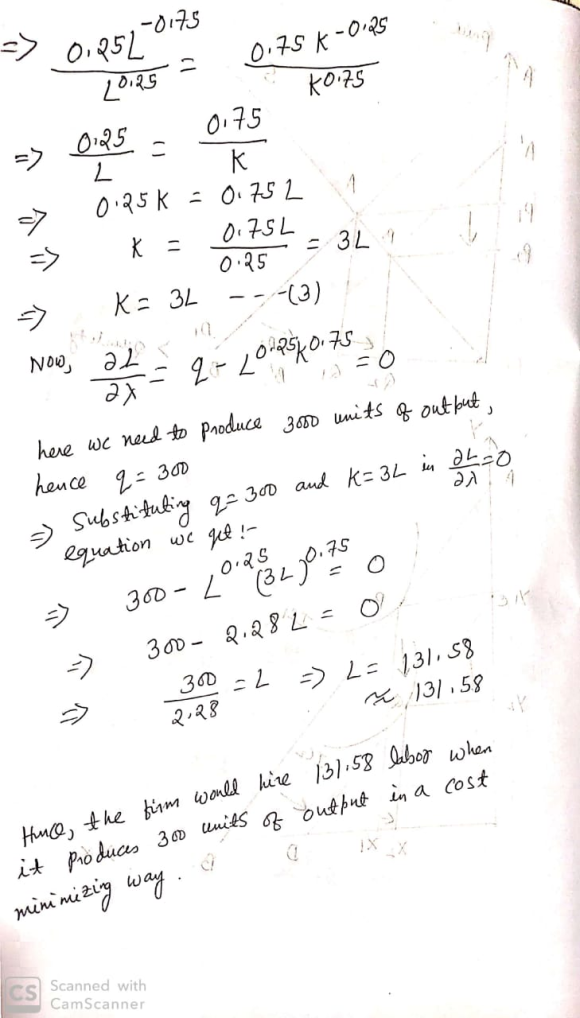 => 0.25L^-0.75 / L^0.25 = 0.75 K^-0.25 / K^0.75
=> 0.25 / L = 0.75 / K
=> 0.25 K = 0.75 L
=> K = 0.75L / 0.25 = 3L
=> K = 3L ---(3)
Now, ∂L/∂λ = q - L^0.25 K^0.75 = 0
here we need to produce 300 units of output,
hence q = 300
=> Substituting q = 300 and K = 3L in ∂L/∂λ = 0
equation we get :-
=> 300 - L^0.25 (3L)^0.75 = 0
=> 300 - 2.28 L = 0
=> 300 / 2.28 = L => L = 131.58
≈ 131.58
Hence, the firm would hire 131.58 labor when
it produces 300 units of output in a cost
minimizing way.
CS Scanned with
CamScanner